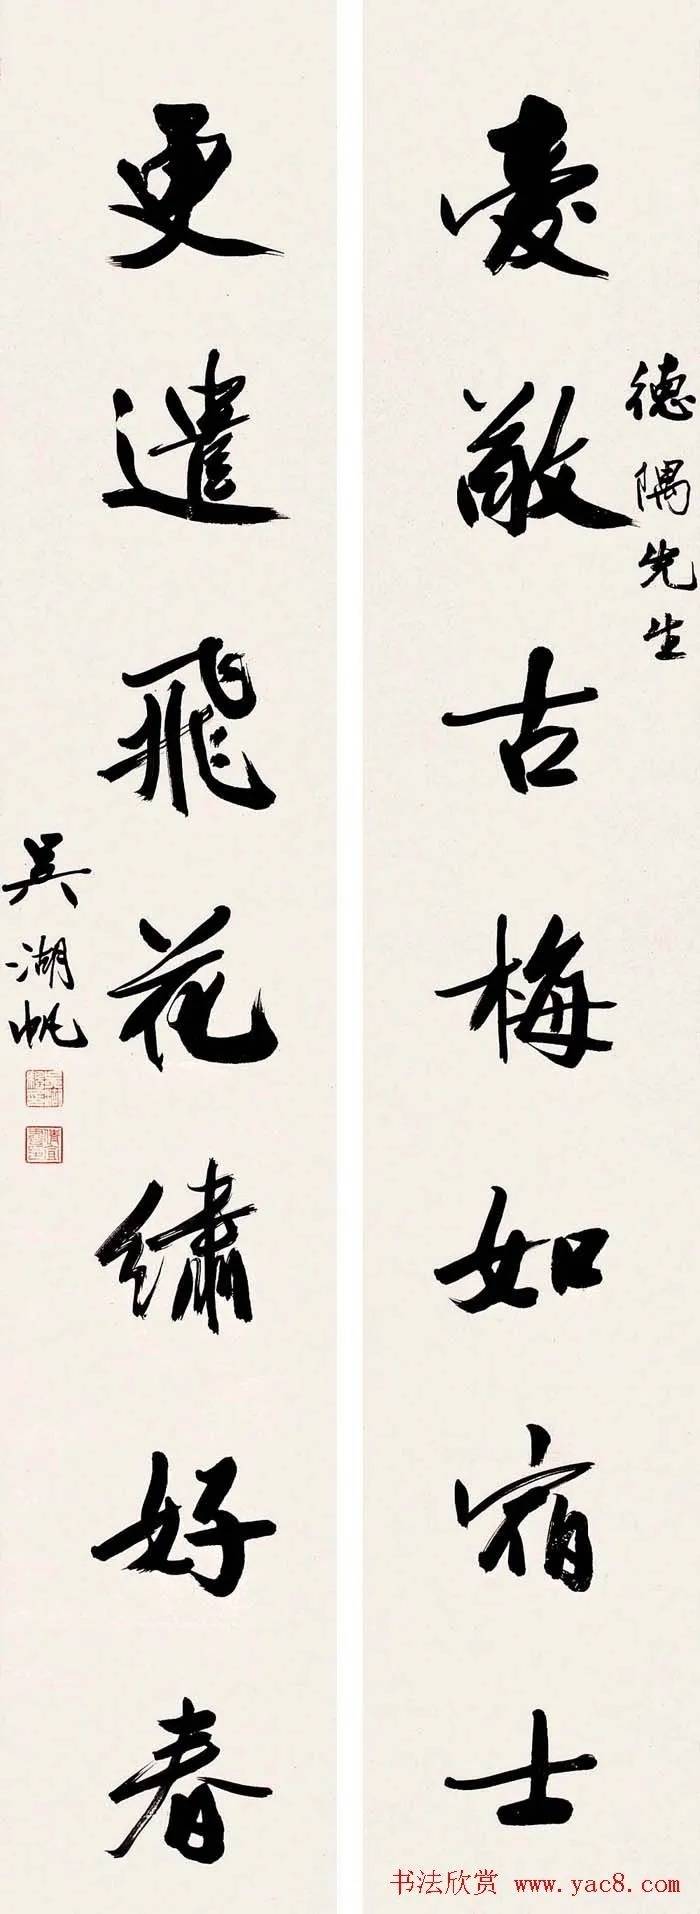 德隅先生
愛敬古梅如宿士
更遣飛花繡好春
吴湖帆
书法欣赏 www.yac8.com